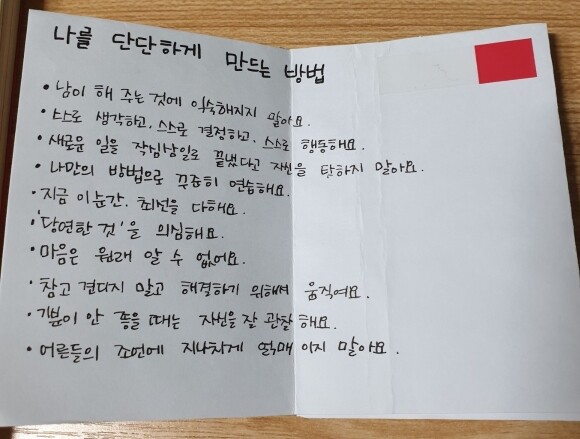 나를 단단하게 만드는 방법
• 남이 해 주는 것에 익숙해지지 말아요.
• 스스로 생각하고, 스스로 결정하고, 스스로 행동해요.
• 새로운 일을 작심삼일로 끝냈다고 자신을 탓하지 말아요.
• 나만의 방법으로 꾸준히 연습해요.
• 지금 이 순간, 최선을 다해요.
• '당연한 것'을 의심해요.
• 마음은 원래 알 수 없어요.
• 참고 견디지 말고 해결하기 위해서 움직여요.
• 기분이 안 좋을 때는 자신을 잘 관찰해요.
• 어른들의 조언에 지나치게 얽매이지 말아요.